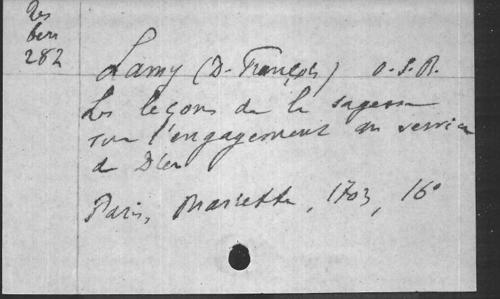 Res
282
Lamy (D. François) O.S.B.
Les leçons de la sagesse
sur l'engagement au service
de Dieu
Paris, Mariette, 1703, 16°